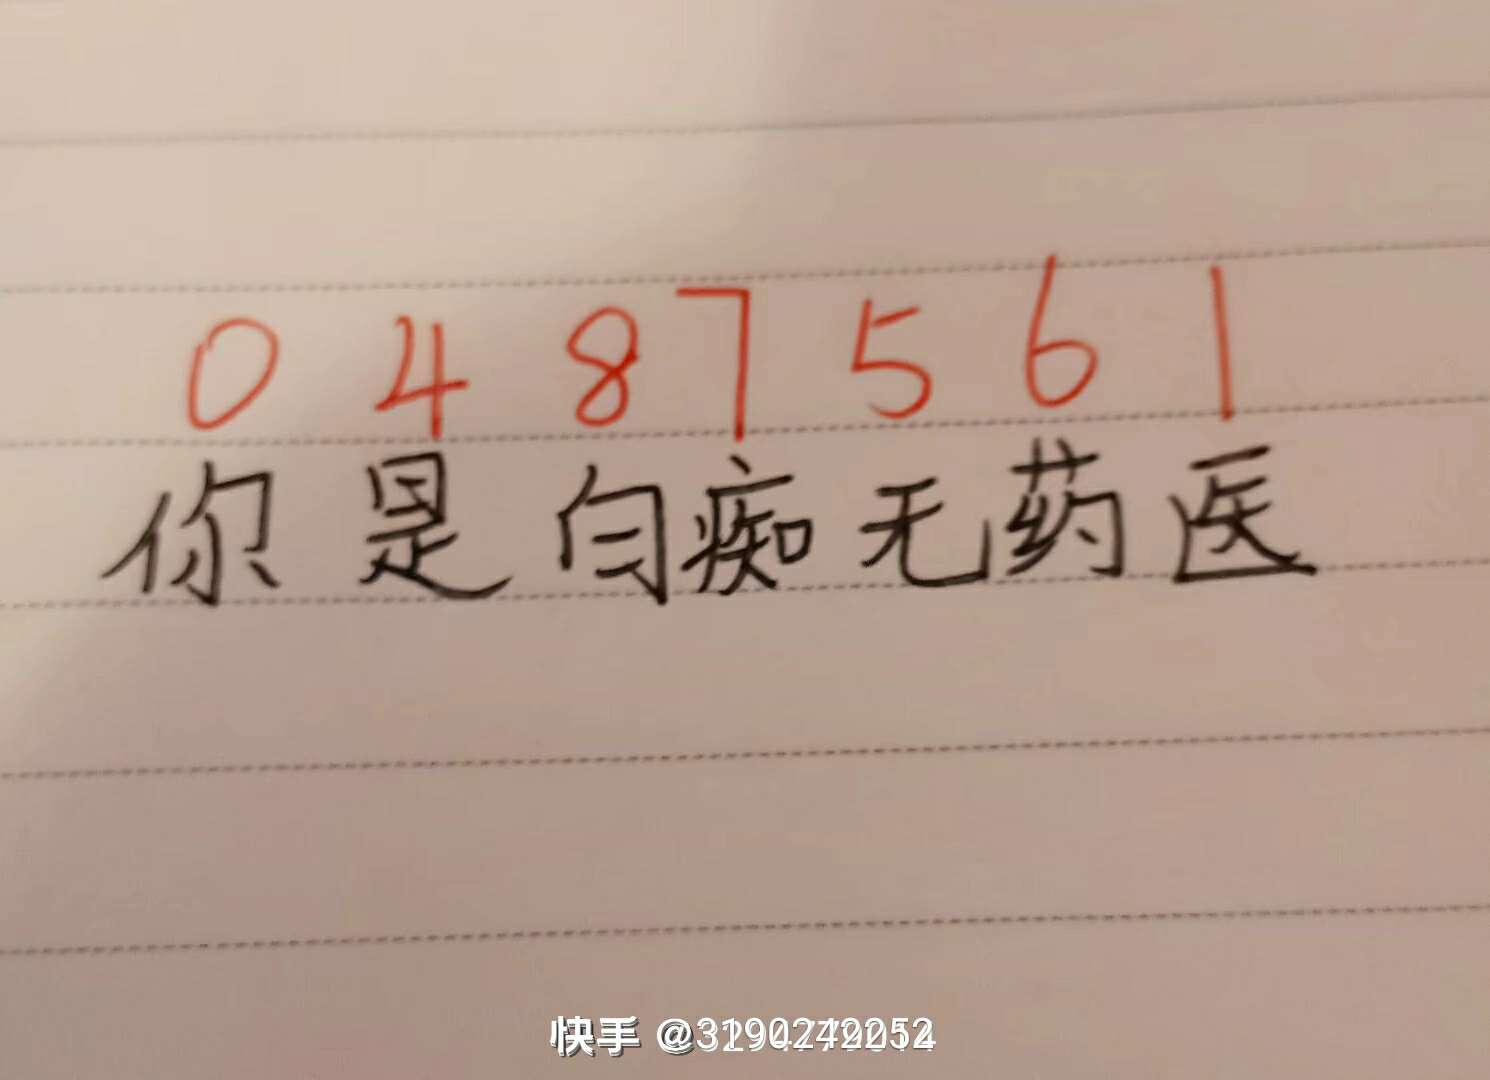 0 4 8 7 5 6 1
你是白痴无药医
快手